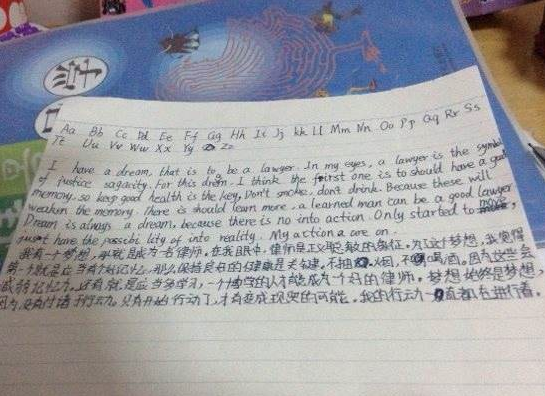 Aa Bb Cc Dd Ee Ff Gg Hh Ii Jj Kk Ll Mm Nn Oo Pp Qq Rr Ss
Tt Uu Vv Ww Xx Yy Zz
I have a dream, that is to be a lawyer. In my eyes, a lawyer is the symbol
of justice sagacity. For this dream, I think the first one is to should have a good
memory, so keep good health is the key, Don't smoke, don't drink. Because these will
weaken the memory. There is should learn more, a learned man can be a good lawyer
Dream is always a dream, because there is no into action. Only started to move,
must have the possibility of into reality. My action are on.
我有一个梦想，那就是成为一名律师，在我眼中，律师是正义聪敏的象征，为了这个梦想，我觉得
第一个就是应当有个好记忆，那么保持良好的健康是关键，不抽烟，不喝酒。因为这些会
减弱记忆力，还有就是应当多学习，一个博学的人才能成为一个好的律师，梦想始终是梦想，
因为没有付诸于行动，只有开始行动了，才有变成现实的可能，我的行动一直都在进行着。